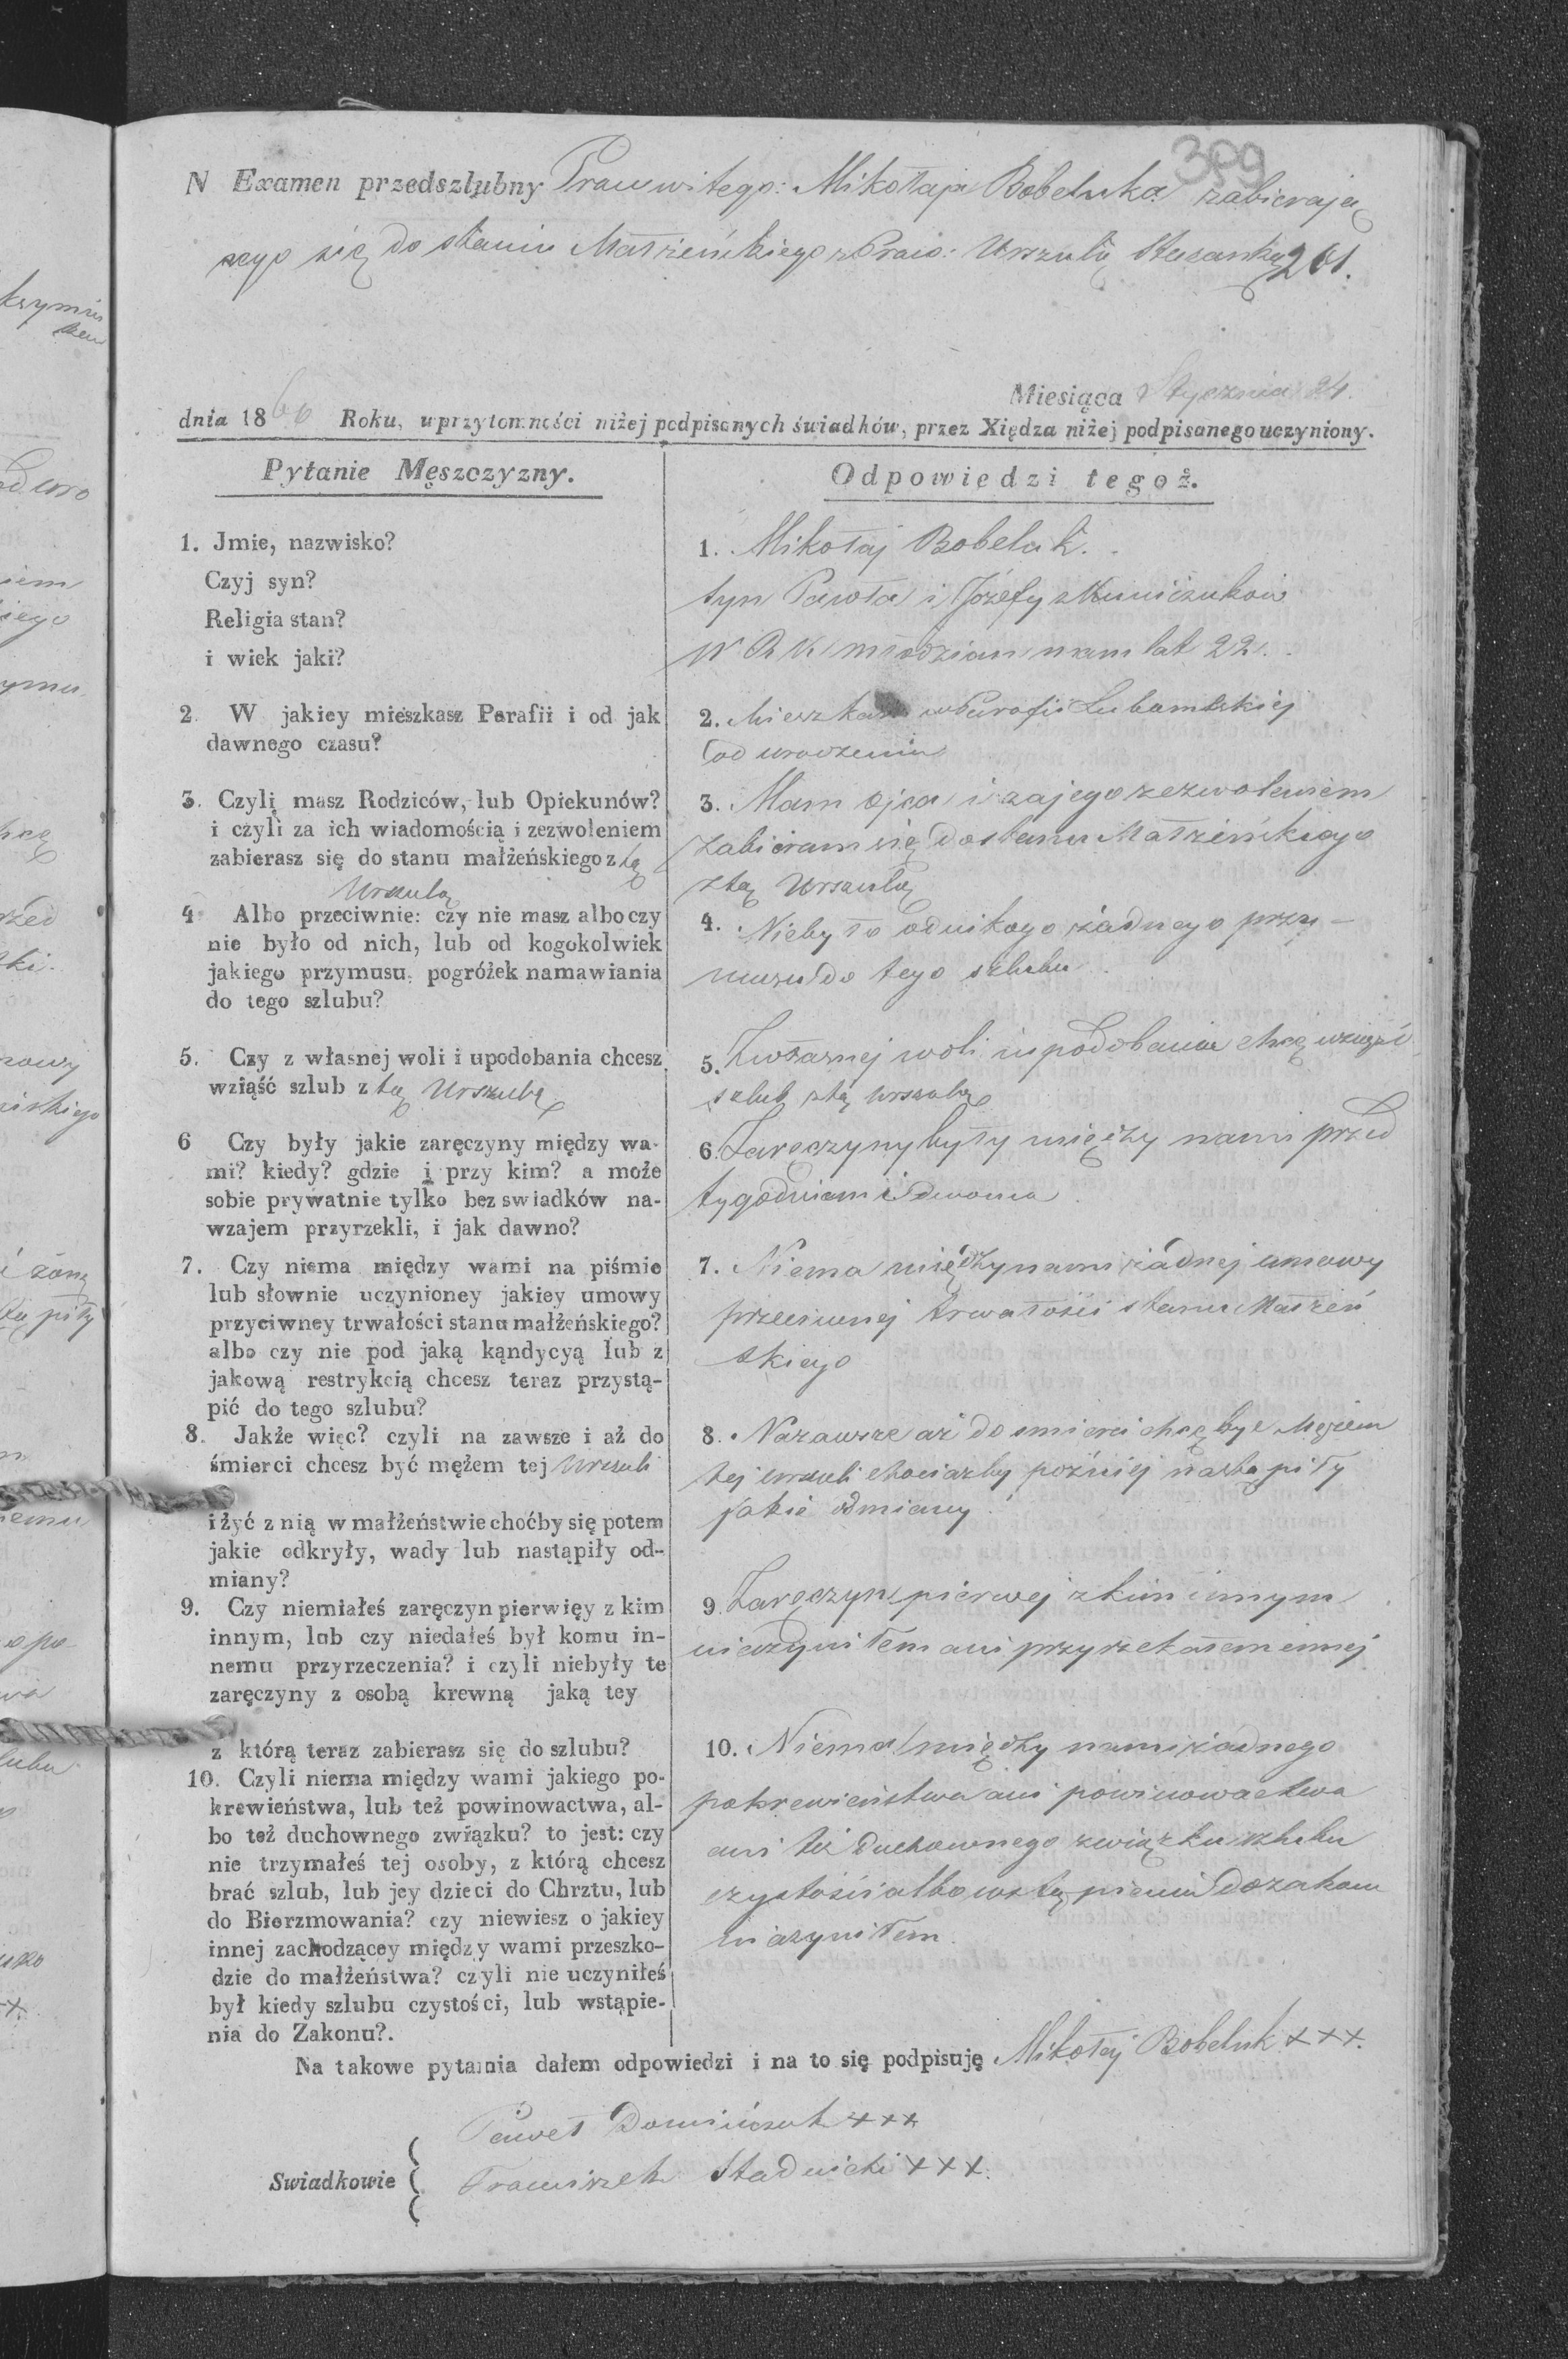 389
N Examen przedszlubny Prawwitego: Mikołaja Bobeluka zabierają
cego się do stanu Małżeńskiego z Praw: Urszulą Stusanką 261.
Miesiąca Stycznia 24.
dnia 1866 Roku, uprzytomności niżej podpisanych świadków, przez Xiędza niżej podpisanego uczyniony.
Pytanie Męszczyzny.
1. Jmie, nazwisko?
Czyj syn?
Religia stan?
i wiek jaki?
2. W jakiey mieszkasz Parafii i od jak
dawnego czasu?
3. Czyli masz Rodziców, lub Opiekunów?
i czyli za ich wiadomością i zezwoleniem
zabierasz się do stanu małżeńskiego z tą
Urszulą
4 Albo przeciwnie: czy nie masz albo czy
nie było od nich, lub od kogokolwiek
jakiego przymusu, pogróżek namawiania
do tego szlubu?
5. Czy z własnej woli i upodobania chcesz
wziąść szlub z tą Urszulą
6 Czy były jakie zaręczyny między wa-
mi? kiedy? gdzie i przy kim? a może
sobie prywatnie tylko bez swiadków na-
wzajem przyrzekli, i jak dawno?
7. Czy niema między wami na piśmie
lub słownie uczynioney jakiey umowy
przyciwney trwałości stanu małżeńskiego?
albo czy nie pod jaką kąndycyą lub z
jakową restrykcią chcesz teraz przystą-
pić do tego szlubu?
8. Jakże więc? czyli na zawsze i aż do
śmierci chcesz być mężem tej Urszuli
i żyć z nią w małżeństwie choćby się potem
jakie odkryły, wady lub nastąpiły od-
miany?
9. Czy niemiałeś zaręczyn pierwięy z kim
innym, lub czy niedałeś był komu in-
nemu przyrzeczenia? i czyli niebyły te
zaręczyny z osobą krewną jaką tey
z którą teraz zabierasz się do szlubu?
10. Czyli niema między wami jakiego po-
krewieństwa, lub też powinowactwa, al-
bo też duchownego związku? to jest: czy
nie trzymałeś tej osoby, z którą chcesz
brać szlub, lub jey dzieci do Chrztu, lub
do Bierzmowania? czy niewiesz o jakiey
innej zachodzącey między wami przeszko-
dzie do małżeństwa? czyli nie uczyniłeś
był kiedy szlubu czystości, lub wstąpie-
nia do Zakonu?.
Odpowiedzi tegoż.
1. Mikołaj Bobeluk.
syn Pawła i Józefy z Municzuków
W R K młodzian mam lat 22.
2. Mieszkam w Parafii Lubamlskiej
od urodzenia
3. Mam ojca i za jego zezwoleniem
zabieram się do stanu Małżeńskiego
z tą Urszulą
4. Nieby ło od nikogo żadnego przy-
musu do tego szlubu
5. Z własnej woli i upodobania chcę wziąść
szlub z tą Urszulą
6. Zaręczyny były między nami przed
tygodniami dwoma
7. Niema między nami żadnej umowy
przeciwnej trwałości stanu Małżeń
skiego
8. Nazawsze aż do smierci chcę być Mężem
tej Urszuli chociażby poźniej nastąpiły
jakie odmiany
9. Zaręczyn pierwej z kim innym
nieczyniłem ani przyrzekałem innej
10. Niema między nami żadnego
pokrewieństwa ani powinowactwa
ani też Duchownego związku szlubu
czystości albo wstąpienia do zakonu
nieczyniłem.
Na takowe pytania dałem odpowiedzi i na to się podpisuję Mikołaj Bobeluk +++.
Swiadkowie
Paweł Dominiczuk +++
Franciszek Stadnicki +++.